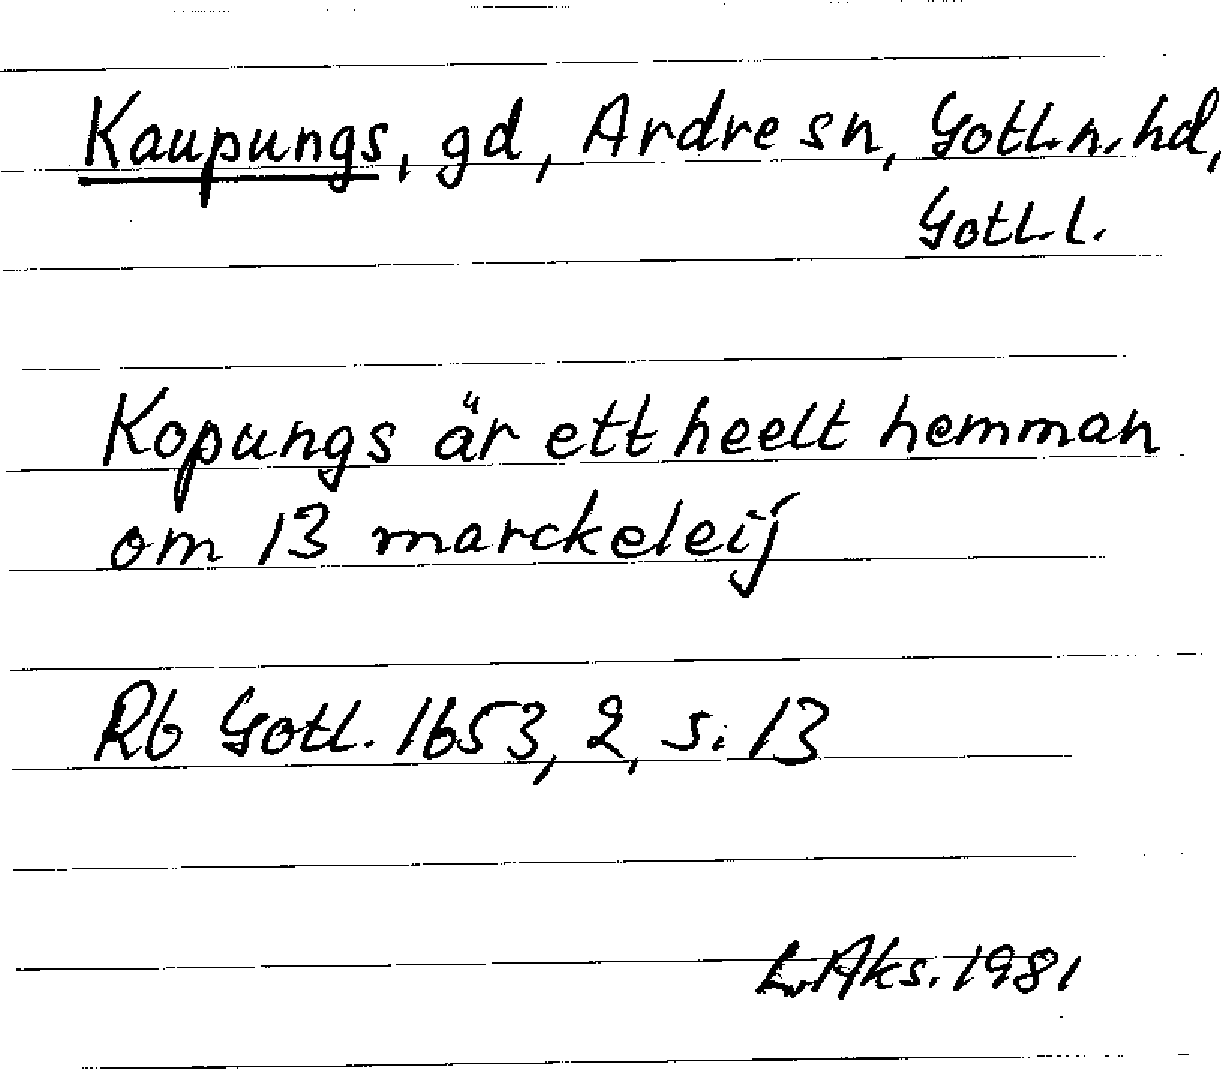 Kaupungs, gd, Ardre sn, Gotl.n.hd,
Gotl.l.
Kopungs är ett heelt hemman
om 13 marckeleij
Rb Gotl. 1653, 2, s. 13
L.Aks. 1981